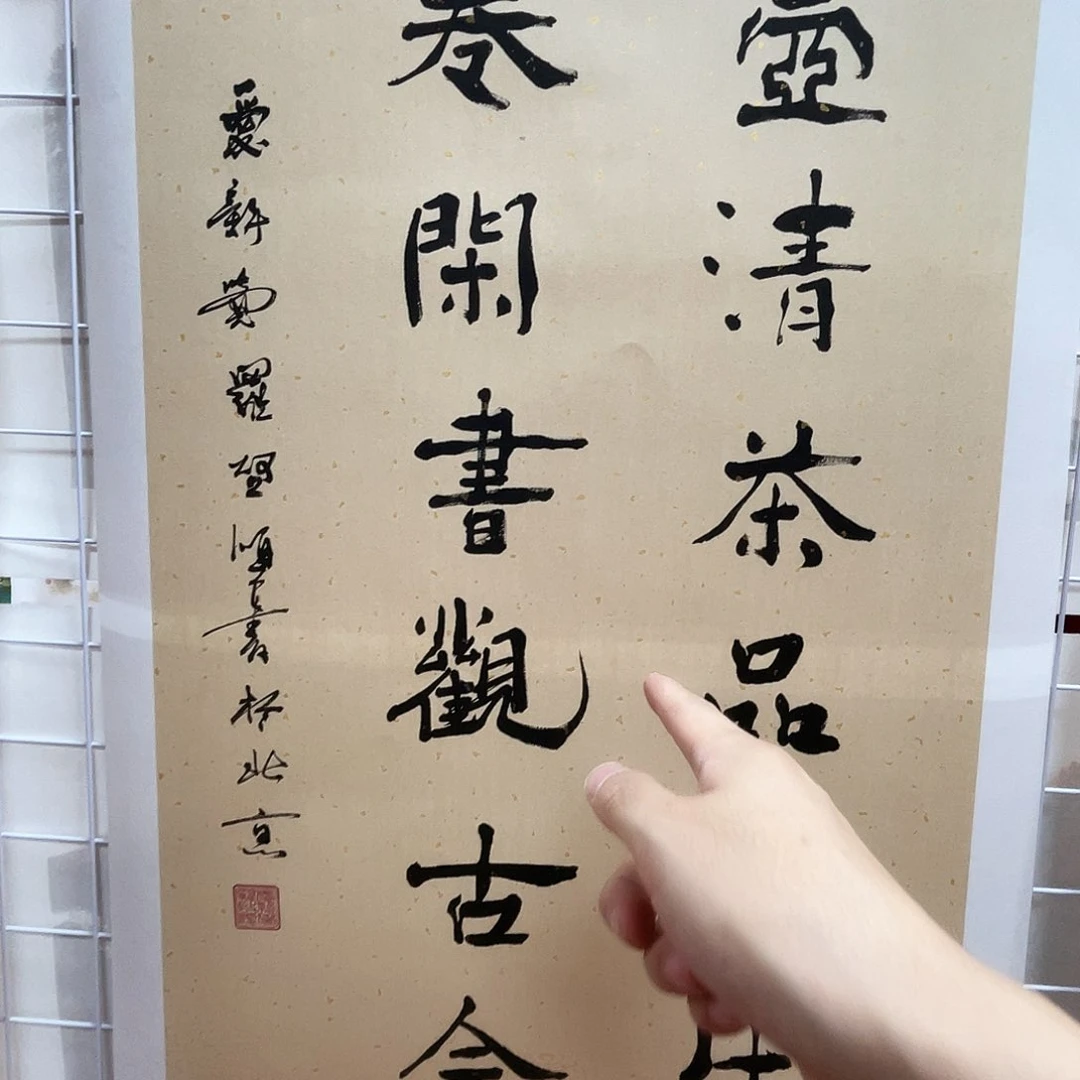 壺清茶品
卷閑書觀古今
愛新覺羅啓頤書於北京